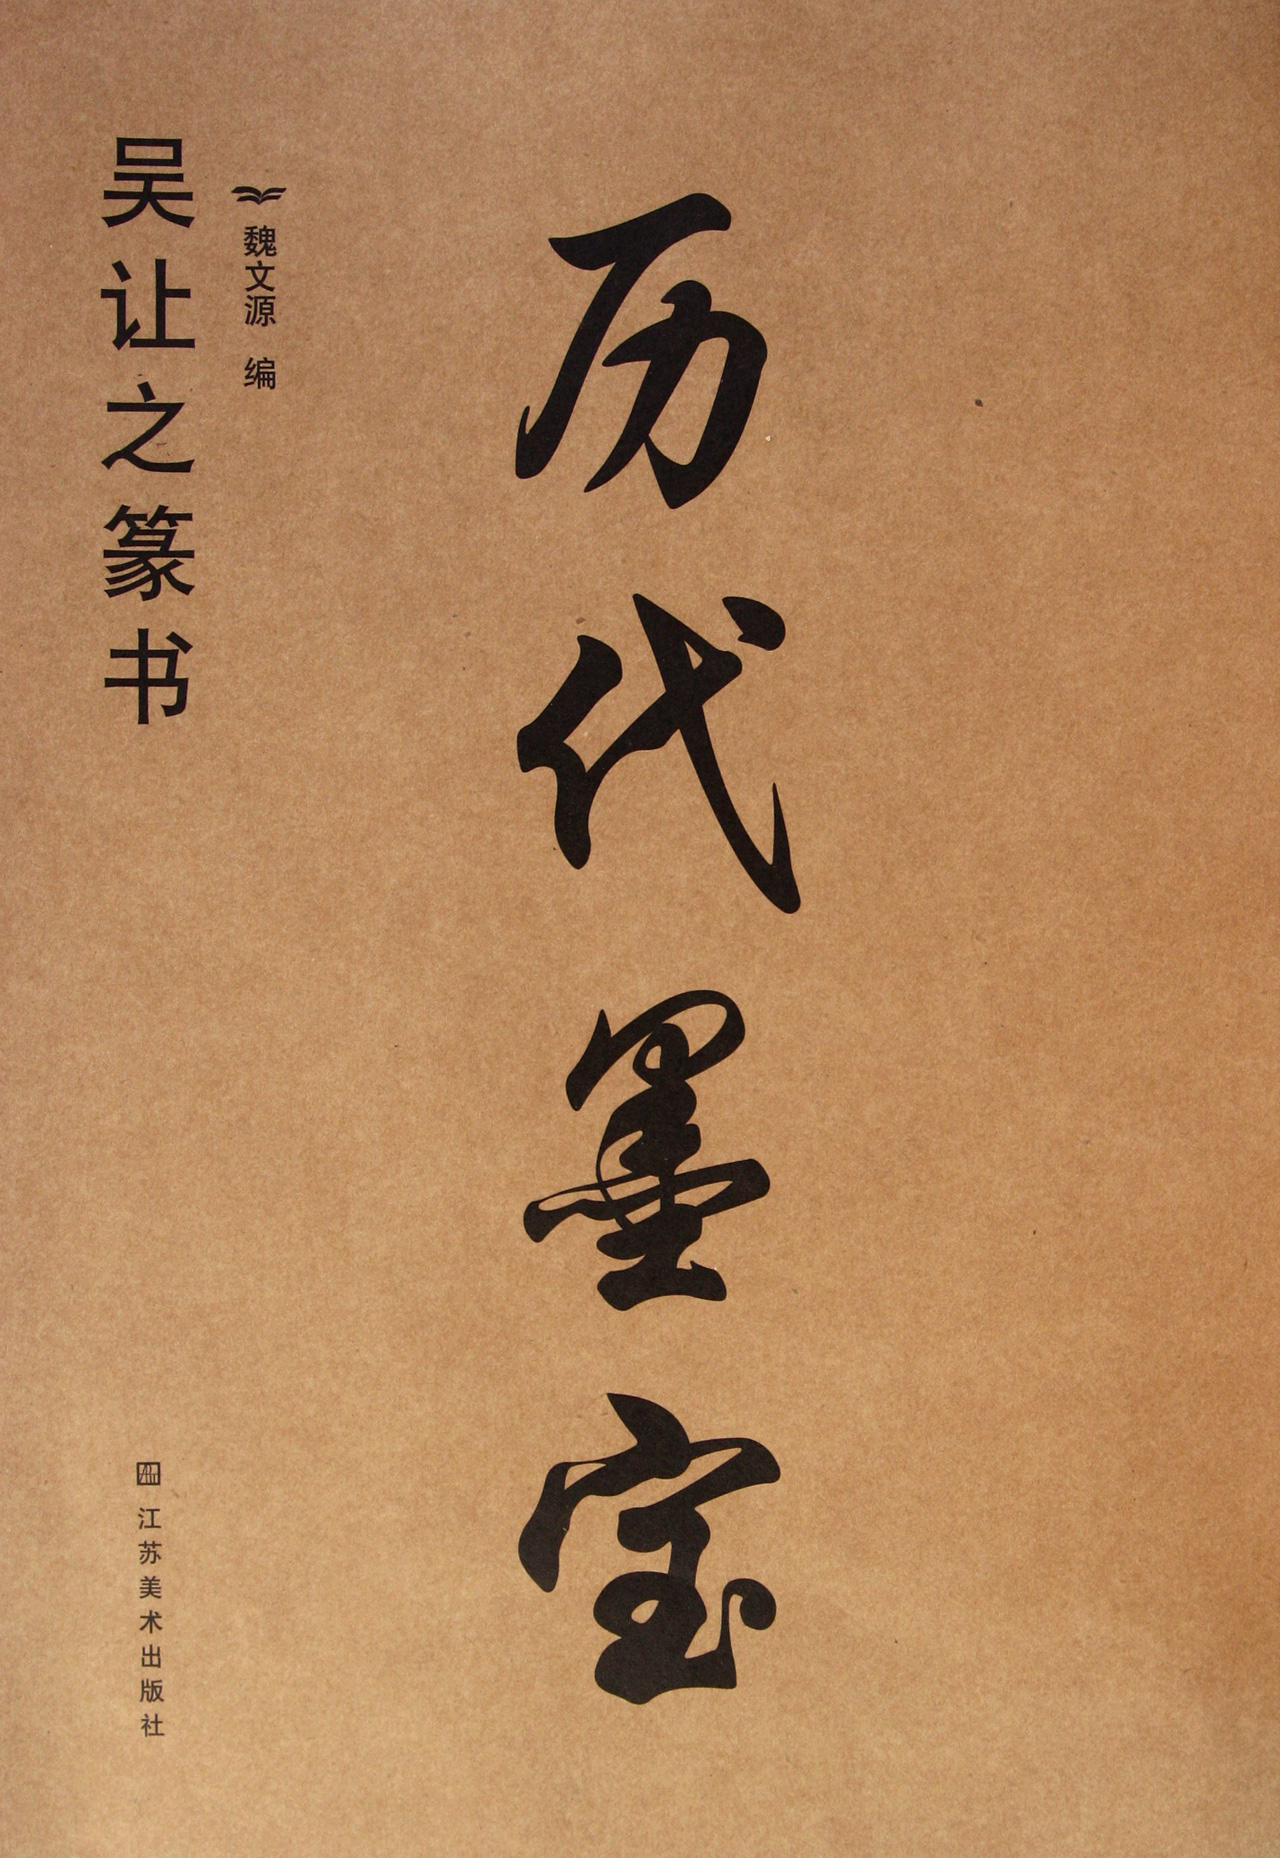 历代墨宝
魏文源 编
吴让之篆书
江苏美术出版社